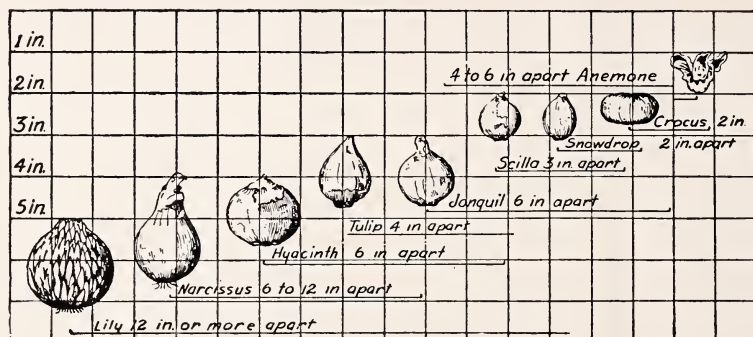 1 in.
4 to 6 in apart Anemone
2 in.
Crocus, 2 in.
3 in.
Snowdrop, 2 in. apart
Scilla 3 in apart
4 in.
Jonquil 6 in apart
5 in.
Tulip 4 in apart
Hyacinth 6 in apart
Narcissus 6 to 12 in apart
Lily 12 in. or more apart